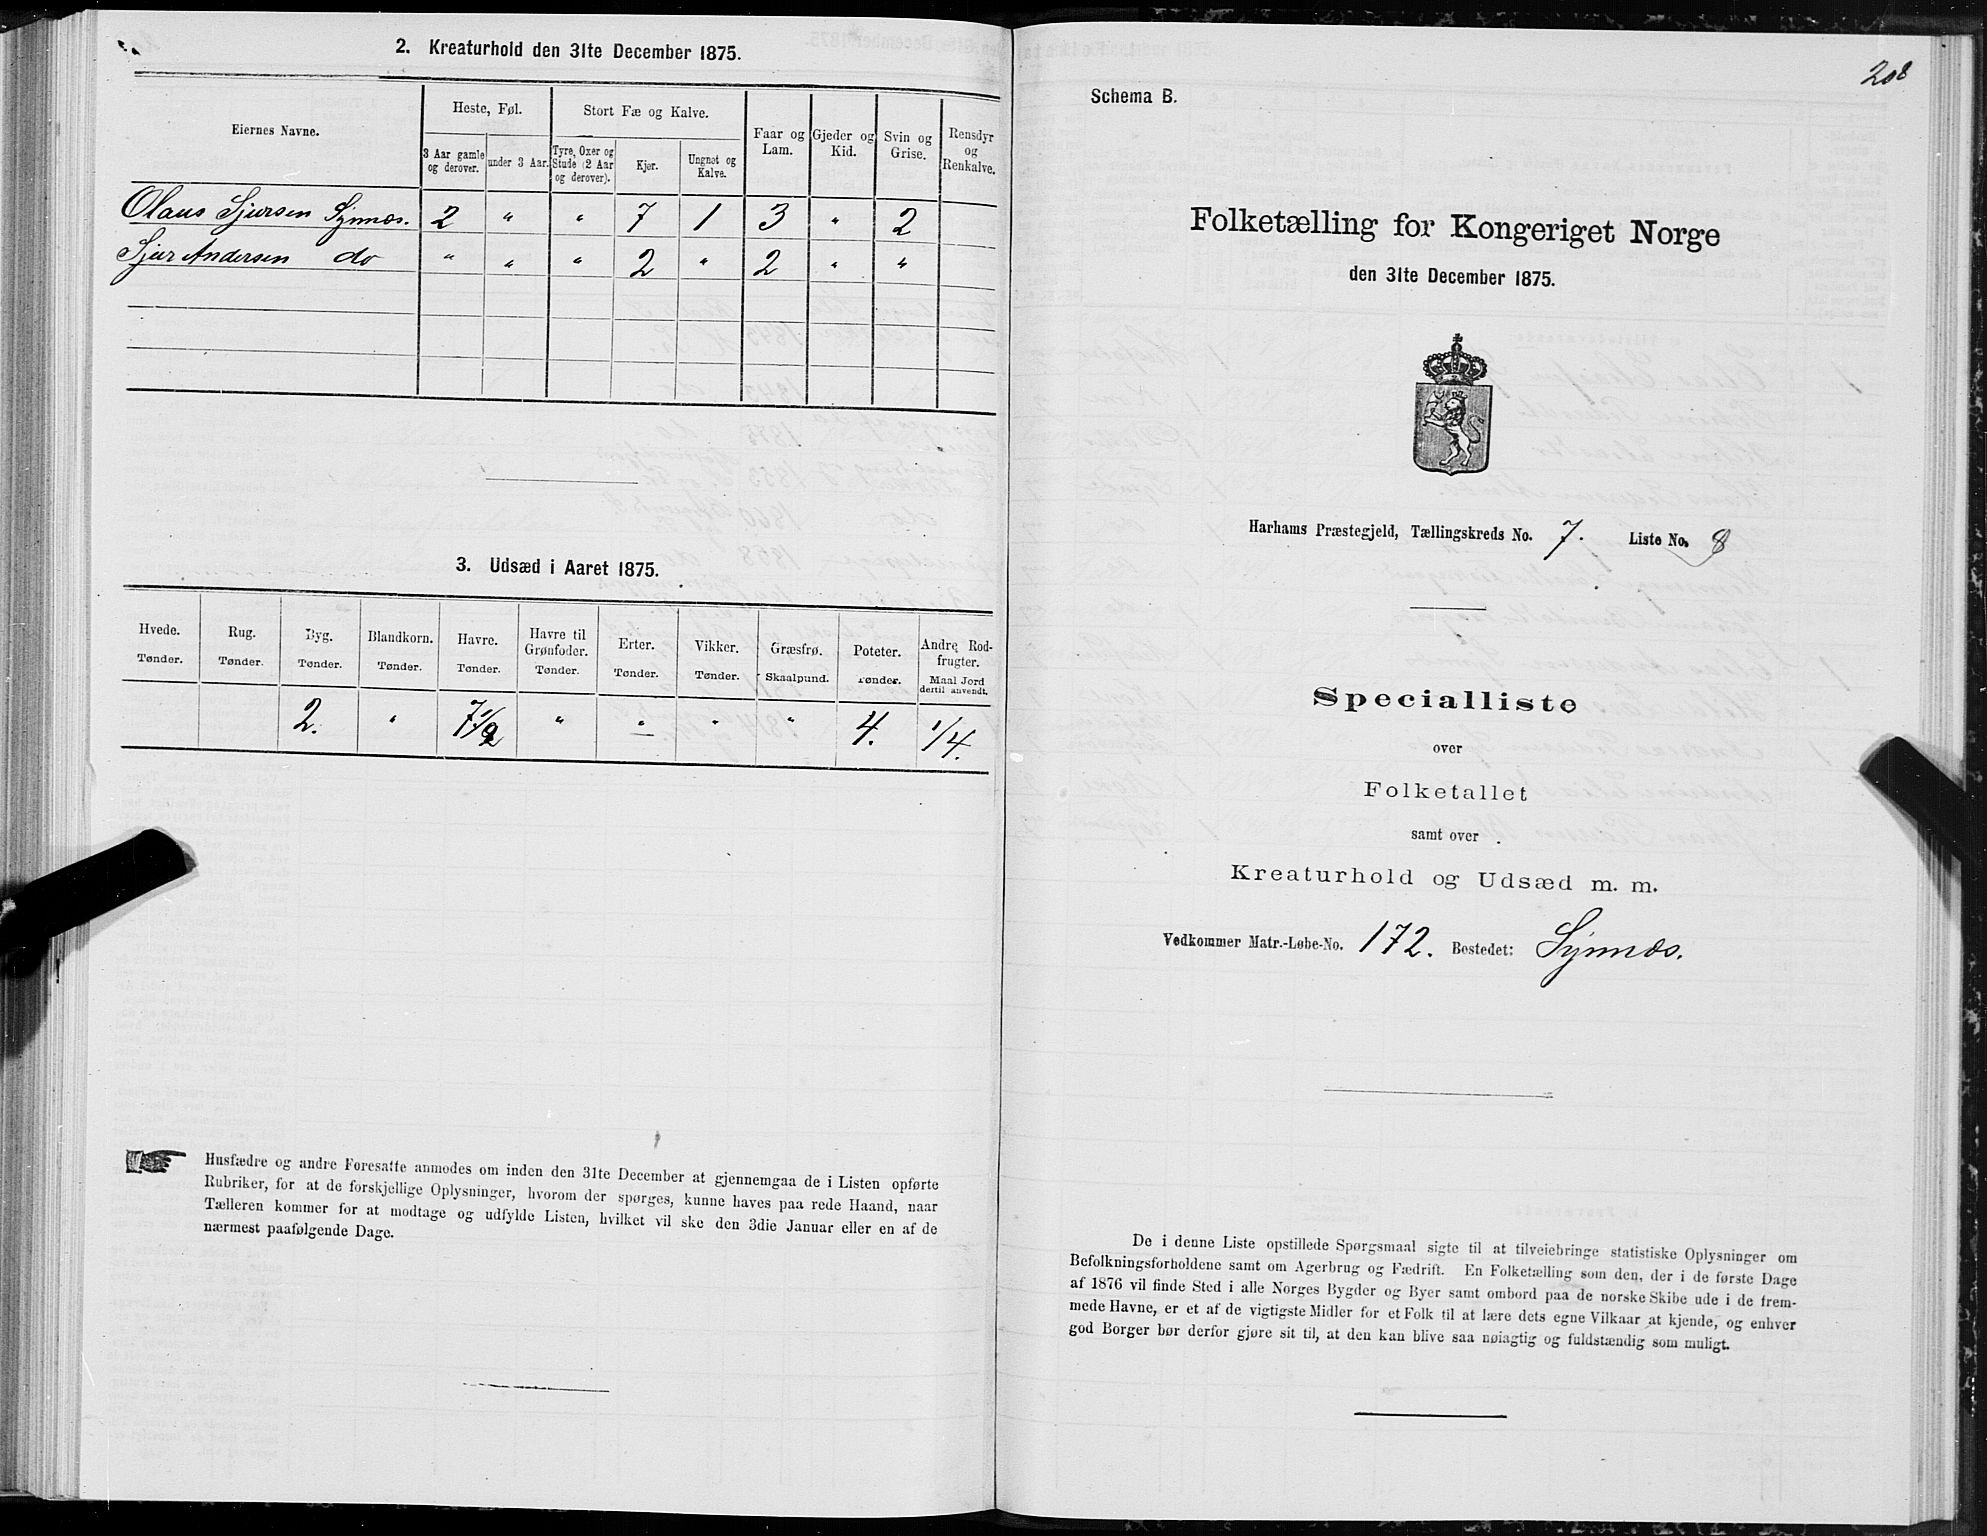 2. Kreaturhold den 31te December 1875.
Eiernes Navne.
Heste, Føl.
Stort Fæ og Kalve.
Faar og Lam.
Gjeder og Kid.
Svin og Grise.
Rensdyr og Renkalve.
3 Aar gamle og derover.
under 3 Aar.
Tyre, Oxer og Stude (2 Aar og derover).
Kjør.
Ungnøt og Kalve.
Olaus Sjursen Synnæs. 2 " " 7 1 3 " 2
Sjur Andersen do " " " 2 " 2 " "
3. Udsæd i Aaret 1875.
Hvede. Rug. Byg. Blandkorn. Havre. Havre til Grønfoder. Erter. Vikker. Græsfrø. Poteter. Andre Rod-frugter.
Tønder. Tønder. Tønder. Tønder. Tønder. Tønder. Tønder. Tønder. Skaalpund. Tønder. Maal Jord dertil anvendt.
2. " 7 1/2 " " " " 4. 1/4.
Husfædre og andre Foresatte anmodes om inden den 31te December at gjennemgaa de i Listen opførte
Rubriker, for at de forskjellige Oplysninger, hvorom der spørges, kunne haves paa rede Haand, naar
Tælleren kommer for at modtage og udfylde Listen, hvilket vil ske den 3die Januar eller en af de
nærmest paafølgende Dage.
208
Schema B.
Folketælling for Kongeriget Norge
den 31te December 1875.
Harhams Præstegjeld, Tællingskreds No. 7. Liste No. 8
Specialliste
over
Folketallet
samt over
Kreaturhold og Udsæd m. m.
Vedkommer Matr.-Løbe-No. 172. Bostedet: Synnæs.
De i denne Liste opstillede Spørgsmaal sigte til at tilveiebringe statistiske Oplysninger om
Befolkningsforholdene samt om Agerbrug og Fædrift. En Folketælling som den, der i de første Dage
af 1876 vil finde Sted i alle Norges Bygder og Byer samt ombord paa de norske Skibe ude i de frem-
mede Havne, er et af de vigtigste Midler for et Folk til at lære dets egne Vilkaar at kjende, og enhver
god Borger bør derfor gjøre sit til, at den kan blive saa nøiagtig og fuldstændig som muligt.